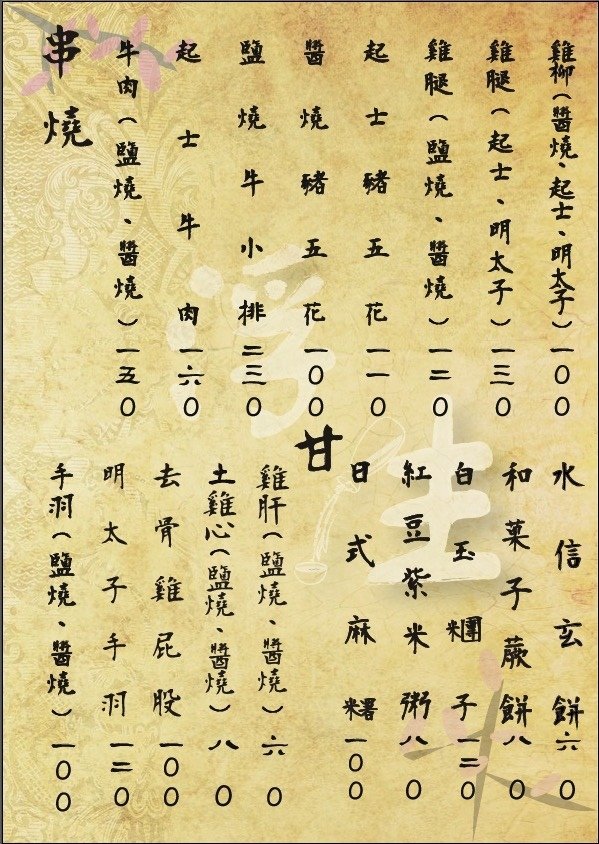 串燒
牛肉(鹽燒、醬燒)一五0
起士牛肉一六0
鹽燒牛小排二三0
醬燒豬五花一00
起士豬五花一一0
雞腿(鹽燒、醬燒)一二0
雞腿(起士、明太子)一三0
雞柳(醬燒、起士、明太子)一00
手羽(鹽燒、醬燒)一00
明太子手羽一二0
去骨雞屁股一00
土雞心(鹽燒、醬燒)八0
雞肝(鹽燒、醬燒)六0
甘
日式麻糬一00
紅豆紫米粥八0
白玉糰子一二0
和菓子蕨餅八0
水信玄餅六0
浮生